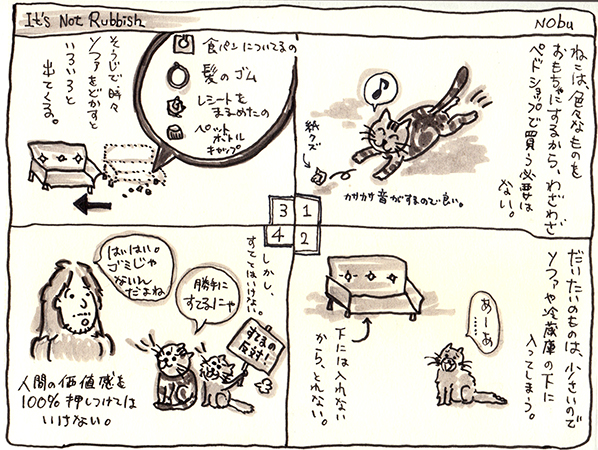 It's Not Rubbish
NObu
ねこは、色々なものを
おもちゃにするから、わざわざ
ペットショップで買う必要は
ない。
♪
紙クズ
カサカサ音がするので良い。
だいたいのものは、小さいので
ソファや冷蔵庫の下に
入ってしまう。
あーあ……
下には入れない
から、とれない。
そうじで時々
ソファをどかすと
いろいろと
出てくる。
食パンについてるの
髪のゴム
レシートを
まるめたの
ペット
ボトル
キャップ
3 1
4 2
しかし、
すててはいけない。
はいはい。
ゴミじゃ
ないん
だよね
勝手に
すてるにゃ
すてるの
反対!
人間の価値感を
100% 押しつけては
いけない。